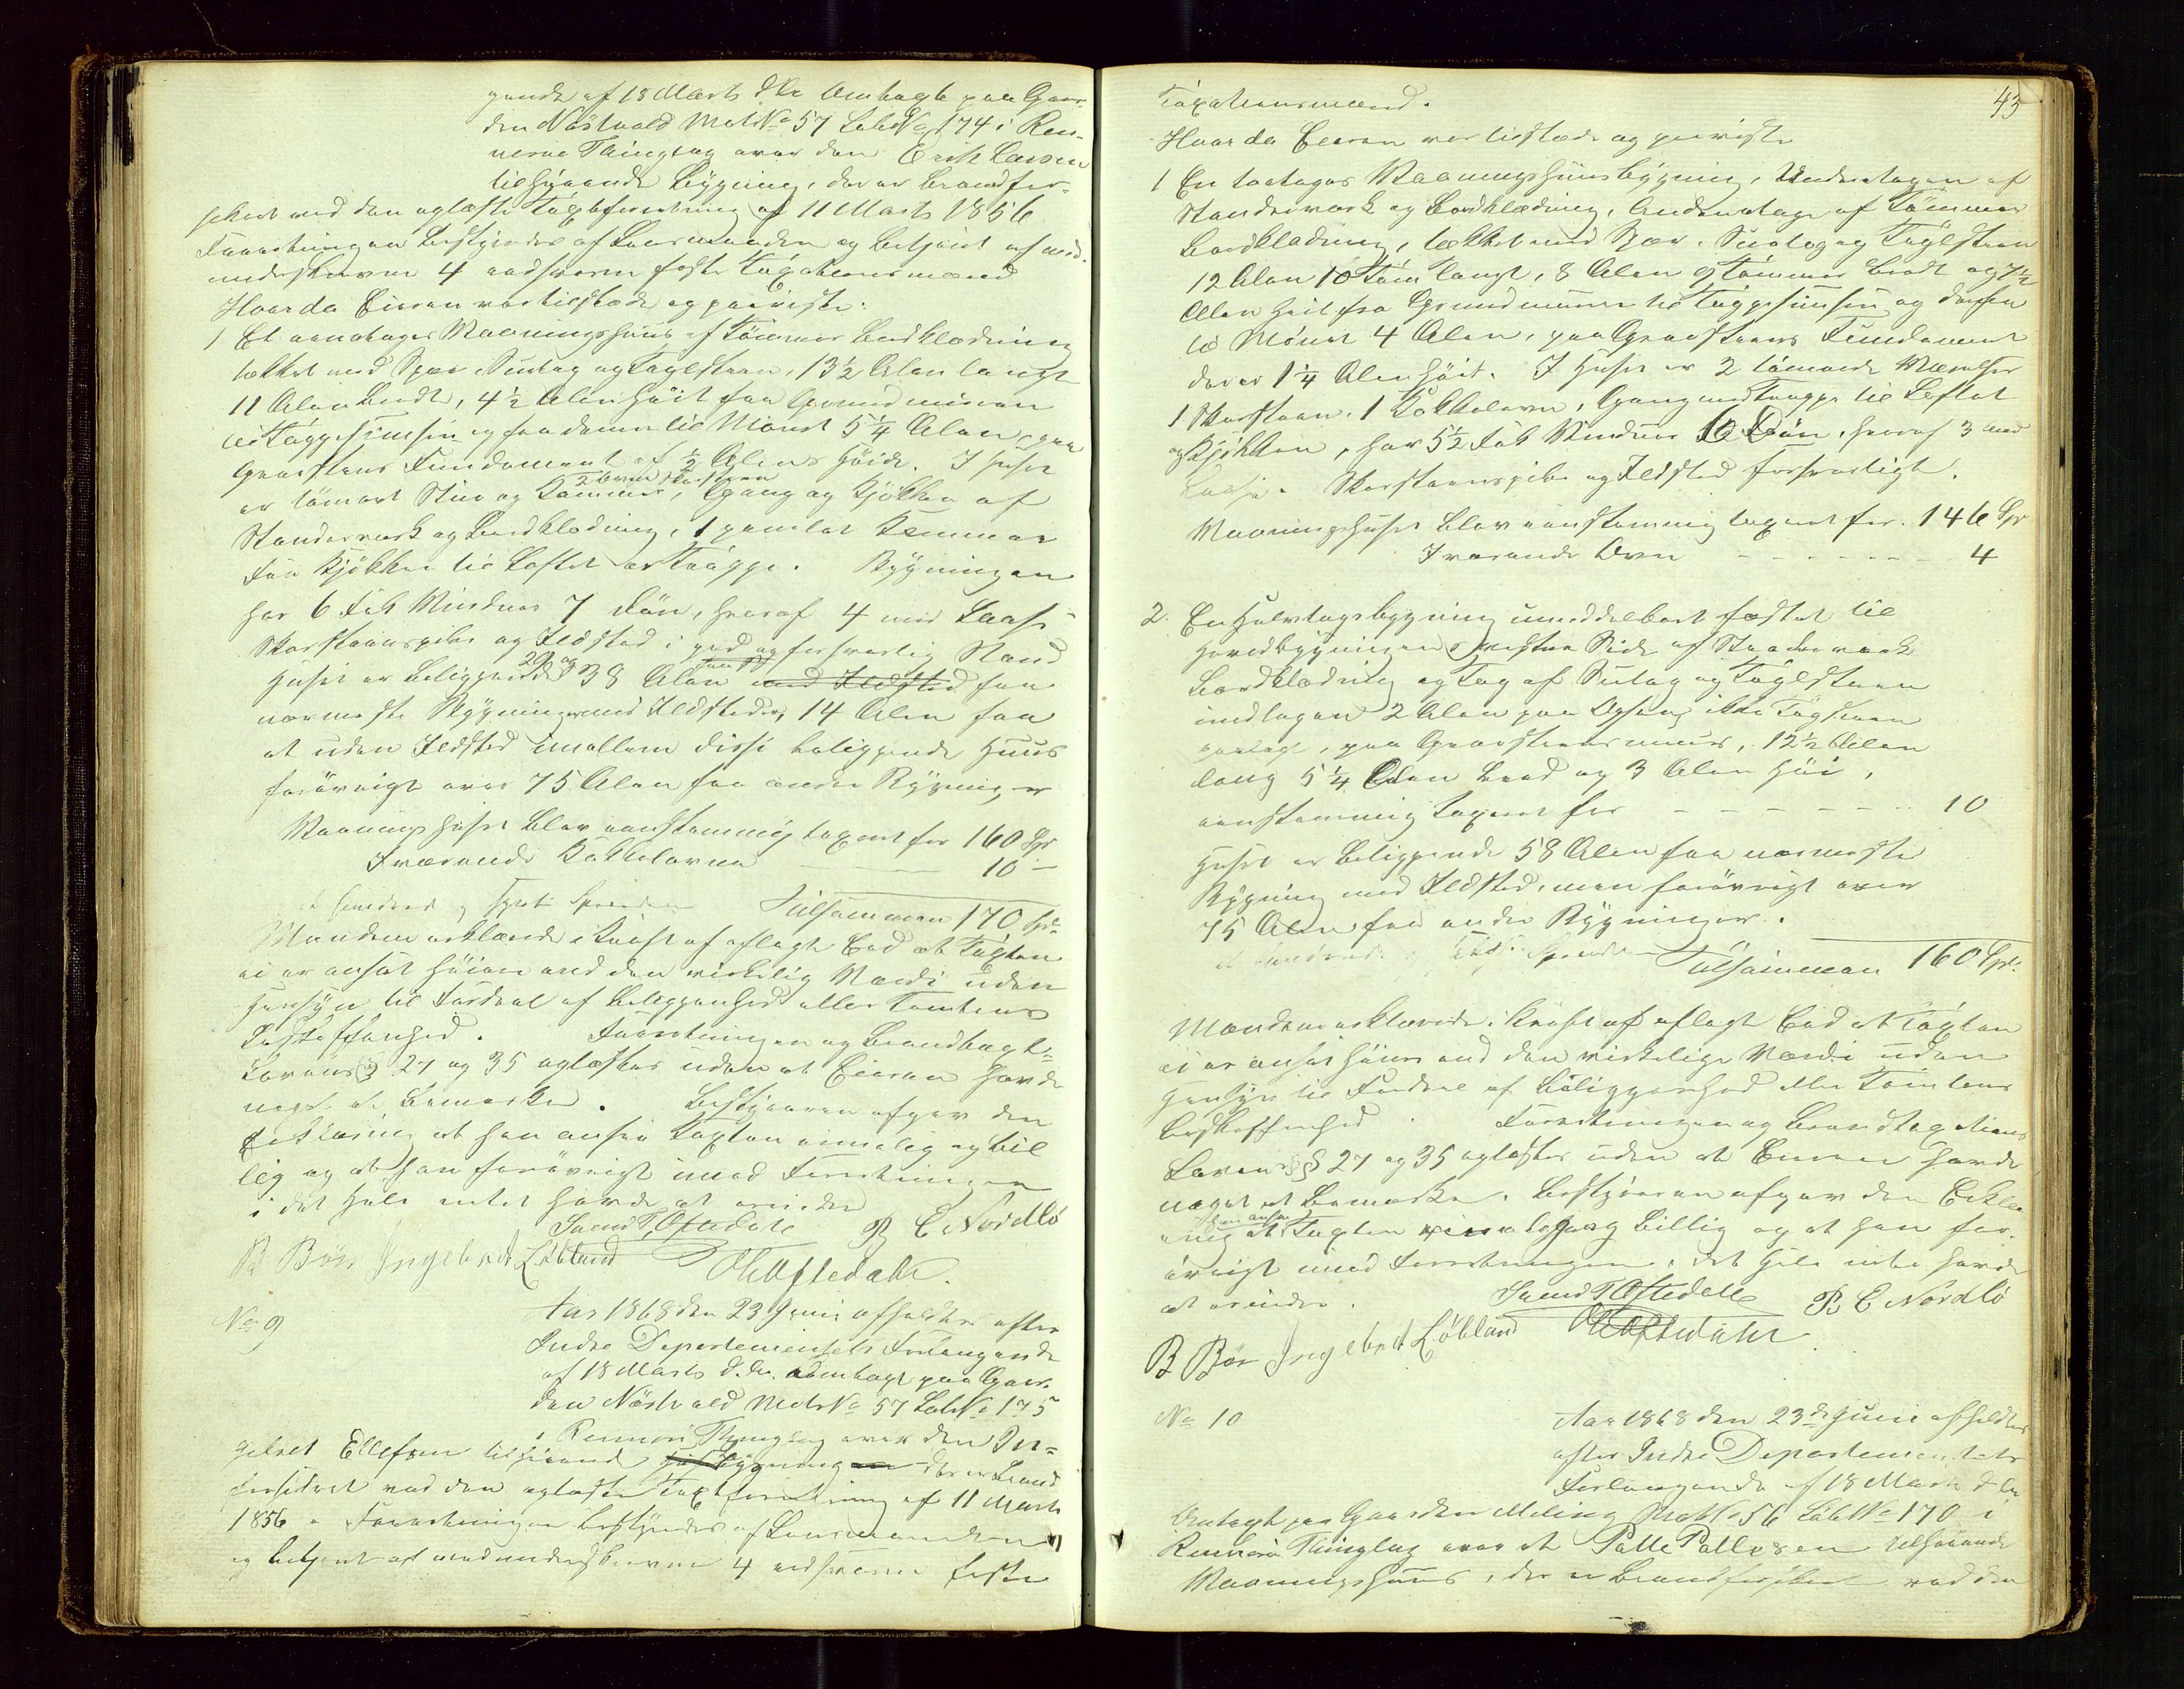 gende af 18 Marts d.A. Omtaxt paa Gaar-
den Nästvold Mat. No 57 Løb No 174 i Ren-
nesøe Thinglag over den Erik Larsen
tilhørende Bygning, der er brandfor-
sikret ved den oplæste Taxtforretning af 11 Marts 1856
Forretningen bestyredes af Lensmanden og betjent af med-
underskrevne 4 edsvorne faste Taxationsmænd
Hvorda Eieren var tilstæde og paaviste:
1 Et eenetages Vaaningshuus af Tømmer Bordklædning
tækket med Spær, Sutag og Taglsteen, 13½ Alen langt
11 Alen bredt, 4½ Alen høit fra Grundmuren
til Taggesimsen og fra denne til Mønet 5¼ Alen, paa
Graasteens Fundament af ½ Alens Høide. I Huset
er tømret Stue og Kammer, Gang og Kjøkken af
2 Ovne Skorsteen
Standerverk og Bordklædning, 1 panelet Kammer
Fra Kjøkken til Loftet er Trappe. Bygningen
har 6 Fak Vinduer 7 Døre, hvoraf 4 med Laase
Skorsteenspibe og Ildsted i god og forsvarlig Stand
Huset er beliggende 20 og 38 Alen med Ildsted fra
nærmeste Bygninger med Ildsteder, 14 Alen fra
et uden Ildsted imellem disse beliggende Huus
forøvrigt over 75 Alen fra andre Bygninger
Vaaningshuset blev eenstemmig taxeret for 160 Spd
Iværende Kakkelovne 10 —
et hundrede og sytti Speciedaler Tilsammen 170 Spd
Mændene erklærede i Kraft af aflagt Eed at Taxten
ei er ansat høiere end den virkelig Værdi uden
Hensyn til Fordeel af Beliggenhed eller Tomtens
Beskaffenhed. Forretningen og Brandtaxt-
Lovens § 27 og 35 oplæstes uden at Eieren havde
noget at bemærke. Bestyreren afgav den
Erklæring at han ansaa Taxten rimelig og bil
lig og at han forøvrigt imod Forretningen
i det Hele intet havde at erindre
Svend T. Oftedale B C Nordlö
B Böe Ingebret Löbland O Oftedahl.
No 9
Aar 1868 den 23 Juni afholdtes efter
Indre Departements Forlangende
af 18 Marts d. A. omtaxt paa Gaar-
den Nästvold Mat No 57 Løb No 175
i Rennesø Thinglag over den In-
gebret Ellefsen tilhørende Bygning der er brand
forsikret ved den oplæste Taxtforretning af 11 Marts
1856. Forretningen bestyredes af Lensmanden
og betjent af medunderskrevne 4 edsvorne faste
43
Taxationsmænd.
Hvorda Eieren var tilstæde og paaviste
1 En toetages Vaaningshuusbygning, Underetagen af
Standerverk og Bordklædning, Andenetage af Tømmer
Bordklædning, tækket med Spær, Sutag og Taglsteen
12 Alen 10 Tom langt, 8 Alen 9 Tommer bredt og 7½
Alen høit fra Grundmuren til Taggesimsen og derfra
til Mønet 4 Alen, paa Graasteens Fundament
der er 1¼ Alen høit. I Huset er 2 tømrede Værelser
1 Skorsteen, 1 Kakkelovn, Gang med Trappe til Loftet
og Kjøkken, har 5½ Fak Vinduer 10 Döre, hvoraf 3 med
Laase. Skorsteenspibe og Ildsted forsvarligt.
Vaaningshuset blev eenstemmig taxeret for. 146 Spd
Iværende Ovn - - - - - - 4
2. En Halvtagsbygning umiddelbart fæstet til
Hovedbygningens vestre Side af Standerverk
Bordklædning og Tag af Sutag og Taglsteen
undtagen 2 Alen paa ikke Tagsteen
paalagt, paa Graasteensmuur, 12½ Alen
lang 5¼ Alen bred og 3 Alen høi,
eenstemmig taxeret for - - - - - - - 10
Huset er beliggende 58 Alen fra nærmeste
Bygning med Ildsted, men forøvrigt over
75 Alen fra andre Bygninger.
et hundrede og Spesiedaler Tilsammen 160 Spd
Mændene erklærede i Kraft af aflagt Eed at Taxten
ei er ansat høiere end den virkelige Værdi uden
Hensyn til Fordeel af Beliggenhed eller Tomtens
Beskaffenhed. Forretningen og Brandtaxations
Lovens §§ 27 og 35 oplæstes uden at Eieren havde
noget at bemærke. Bestyreren afgav den Erklæ
ring at han ansaa Taxten rimelig og billig og at han for-
øvrigt imod Forretningen i det Hele intet havde
at erindre.
Svend T Oftedale B C Nordlö
B Böe Ingebret Löbland O Oftedahl
No 10
Aar 1868 den 23de Juni afholdtes
efter Indre Departementets
Forlangende af 18 Marts d A
Omtaxt paa Gaarden Meling Mat No 56 Løb No 170 i
Rennesø Thinglag over et Palle Pallesen tilhørende
Vaaningshuus, der er brandforsikret ved den